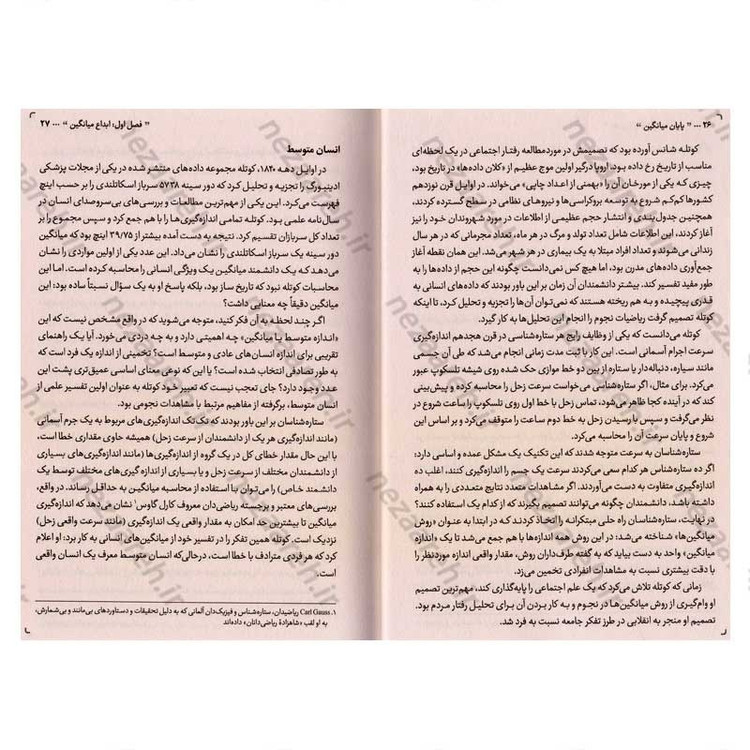 ۲۶ ... " پایان میانگین "
کوتله شانس آورده بود که تصمیمش در مورد مطالعه رفتار اجتماعی در یک لحظه‌ای
مناسب از تاریخ رخ داده بود. اروپا درگیر اولین موج عظیم از «کلان داده‌ها» در تاریخ بود،
چیزی که یکی از مورخان آن را «بهمنی از اعداد چاپی» می‌خواند. در اوایل قرن نوزدهم
کشورها کم‌کم شروع به توسعه بروکراسی‌ها و نیروهای نظامی در سطح گسترده کردند،
همچنین جدول‌بندی و انتشار حجم عظیمی از اطلاعات در مورد شهروندان خود را نیز
آغاز کردند، این اطلاعات شامل تعداد تولد و مرگ در هر ماه، تعداد مجرمانی که در هر سال
زندانی می‌شوند و تعداد افراد مبتلا به یک بیماری در هر شهر می‌شد. این همان نقطه آغاز
جمع‌آوری داده‌های مدرن بود، اما هیچ کس نمی‌دانست چگونه این حجم از داده‌ها را به
طور مفید تفسیر کند. بیشتر دانشمندان آن زمان بر این باور بودند که داده‌های انسانی به
قدری پیچیده و به هم ریخته هستند که نمی‌توان آن‌ها را تجزیه و تحلیل کرد، تا اینکه
کوتله تصمیم گرفت ریاضیات نجوم را انجام این تحلیل‌ها به کار گیرد.
کوتله می‌دانست که یکی از وظایف رایج هر ستاره‌شناسی در قرن هجدهم اندازه‌گیری
سرعت اجرام آسمانی است. این کار با ثبت مدت زمانی انجام می‌شد که طی آن جسمی
مانند سیاره، دنباله‌دار یا ستاره از بین دو خط موازی حک شده روی شیشه تلسکوپ عبور
می‌کرد. برای مثال، اگر ستاره‌شناسی می‌خواست سرعت زحل را محاسبه کرده و پیش‌بینی
کند که در آینده کجا ظاهر می‌شود، تماس زحل با خط اول روی تلسکوپ را ساعت شروع در
نظر می‌گرفت و سپس با رسیدن زحل به خط دوم ساعت را متوقف می‌کرد و بر اساس این
شروع و پایان سرعت آن را محاسبه می‌کرد.
ستاره‌شناسان به سرعت متوجه شدند که این تکنیک یک مشکل عمده و اساسی دارد:
اگر ده ستاره‌شناس هر کدام سعی می‌کردند سرعت یک جسم را اندازه‌گیری کنند، اغلب ده
اندازه‌گیری متفاوت به دست می‌آوردند. اگر مشاهدات متعدد نتایج متعددی را به همراه
داشته باشد، دانشمندان چگونه می‌توانند تصمیم بگیرند که از کدام یک استفاده کنند؟
در نهایت، ستاره‌شناسان راه حلی مبتکرانه را اتخاذ کردند که در ابتدا به عنوان «روش
میانگین‌ها» شناخته می‌شد؛ در این روش همه اندازه‌ها با هم جمع می‌شد تا یک «اندازه
میانگین» واحد به دست بیاید که به گفته طرف‌داران روش، مقدار واقعی اندازه موردنظر را
با دقت بیشتری نسبت به مشاهدات انفرادی تخمین می‌زد.
زمانی که کوتله تلاش می‌کرد که یک علم اجتماعی را پایه‌گذاری کند، مهم‌ترین تصمیم
او وام‌گیری از روش میانگین‌ها در نجوم و به کار بردن آن برای تحلیل رفتار مردم بود.
تصمیم او منجر به انقلابی در طرز تفکر جامعه نسبت به فرد شد.
" فصل اول: ابداع میانگین " ... ۲۷
انسان متوسط
در اوایل دهه ۱۸۴۰، کوتله مجموعه داده‌های منتشر شده در یکی از مجلات پزشکی
ادینبورگ را تجزیه و تحلیل کرد که دور سینه ۵۷۳۸ سرباز اسکاتلندی را بر حسب اینچ
فهرست می‌کرد. این یکی از مهم‌ترین مطالعات و بررسی‌های بی‌سروصدای انسان در
سال‌نامه علمی بود. کوتله تمامی اندازه‌گیری‌ها را با هم جمع کرد و سپس مجموع را بر
تعداد کل سربازان تقسیم کرد. نتیجه به دست آمده بیشتر از ۳۹/۷۵ اینچ بود که میانگین
دور سینه یک سرباز اسکاتلندی را نشان می‌داد. این عدد یکی از اولین مواردی را نشان
می‌دهد که یک دانشمند میانگین یک ویژگی انسانی را محاسبه کرده است. اما این
محاسبات کوتله نبود که تاریخ ساز بود، بلکه پاسخ او به یک سؤال نسبتاً ساده بود: این
میانگین دقیقاً چه معنایی داشت؟
اگر چند لحظه به آن فکر کنید، متوجه می‌شوید که در واقع مشخص نیست که این
«اندازه متوسط یا میانگین» چه اهمیتی دارد و به چه دردی می‌خورد. آیا یک راهنمای
تقریبی برای اندازه انسان‌های عادی و متوسط است؟ تخمینی از اندازه یک فرد است که
به طور تصادفی انتخاب شده است؟ یا این که نوعی معنای اساسی عمیق‌تری پشت این
عدد وجود دارد؟ جای تعجب نیست که تعبیر خود کوتله به عنوان اولین تفسیر علمی از
انسان متوسط، برگرفته از مفاهیم مرتبط با مشاهدات نجومی بود.
ستاره‌شناسان بر این باور بودند که تک‌تک اندازه‌گیری‌های مربوط به یک جرم آسمانی
(مانند اندازه‌گیری هر یک از دانشمندان از سرعت زحل) همیشه حاوی مقداری خطا است،
با این حال مقدار خطای کل در یک گروه از اندازه‌گیری‌ها (مانند اندازه‌گیری‌های بسیاری
از دانشمندان مختلف از سرعت زحل و یا بسیاری از اندازه گیری های مختلف توسط یک
دانشمند خاص) را می‌توان با استفاده از محاسبه میانگین به حداقل رساند. در واقع،
بررسی‌های معتبر و برجسته ریاضی‌دان معروف کارل گاوس۱ نشان می‌دهد که اندازه‌گیری
میانگین تا بیشترین حد امکان به مقدار واقعی یک اندازه‌گیری (مانند سرعت واقعی زحل)
نزدیک است. کوتله همین تفکر را در تفسیر خود از میانگین‌های انسانی به کار برد: او اعلام
کرد که هر فردی مترادف با خطا است، درحالی‌که انسان متوسط معرف یک انسان واقعی
است.
۱. Carl Gauss ریاضیدان، ستاره‌شناس و فیزیک‌دان آلمانی که به دلیل تحقیقات و دستاوردهای بی‌مانند و بی‌شمارش،
به او لقب «شاهزادهٔ ریاضی‌دانان» داده‌اند
nezamah.ir